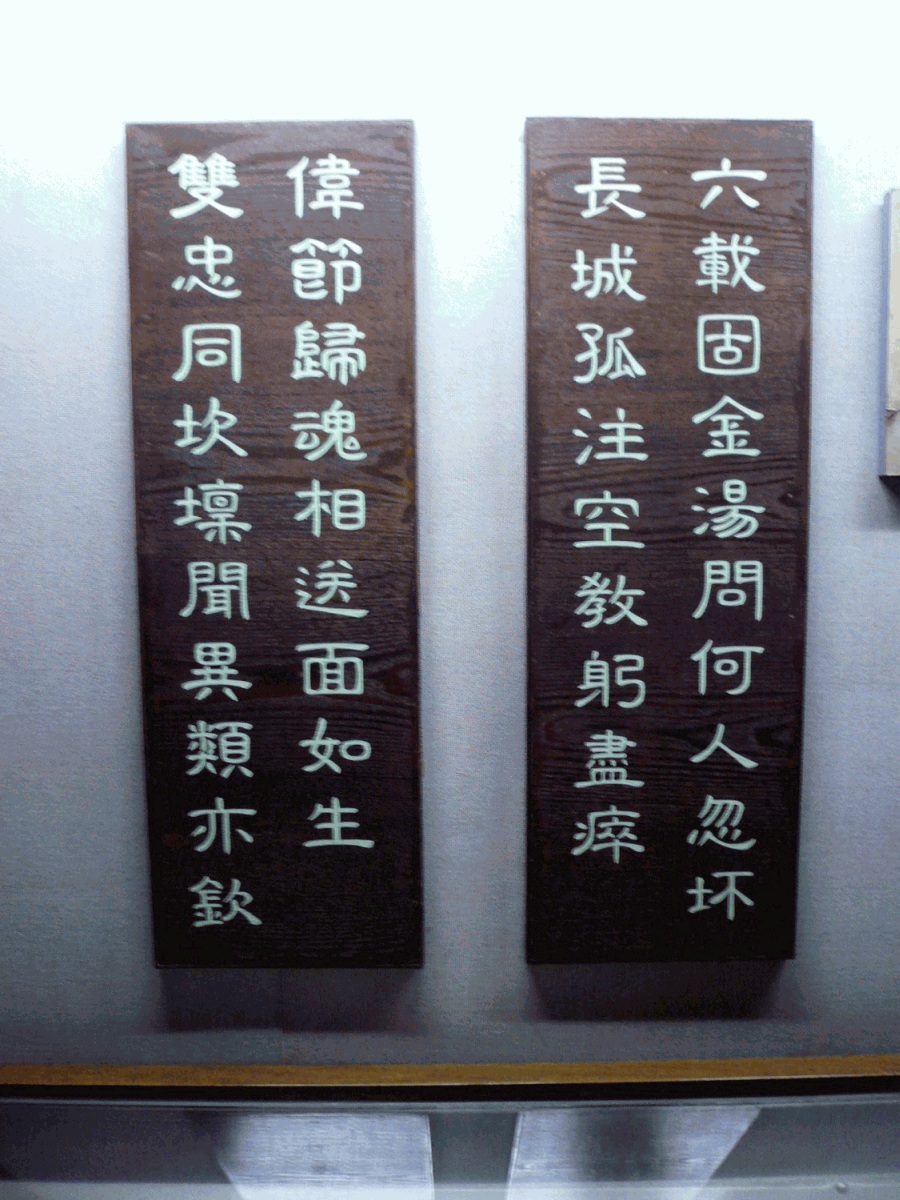 六載固金湯問何人忽坏
長城孤注空教躬盡瘁
雙忠同坎壈聞異類亦欽
偉節歸魂相送面如生